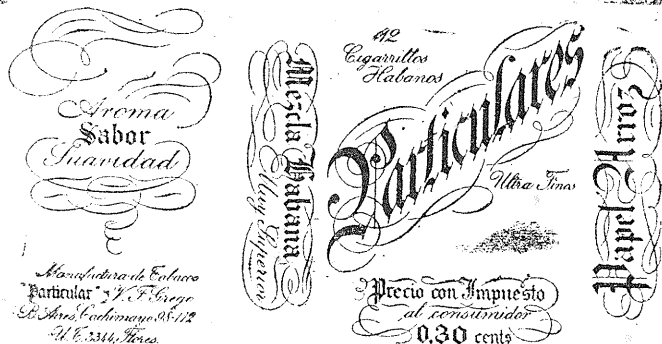 Aroma
Sabor
Suavidad
Manufactura de Tabacos
"Particular" V. F. Grego
Bs. Aires, Cachimayo
U. T. 3344, Flores.
Mezcla Habana
Muy Superior
Cigarrillos
Habanos
Particulares
Ultra Finos
Precio con Impuesto
al consumidor
0.30 cents
Papel Arroz